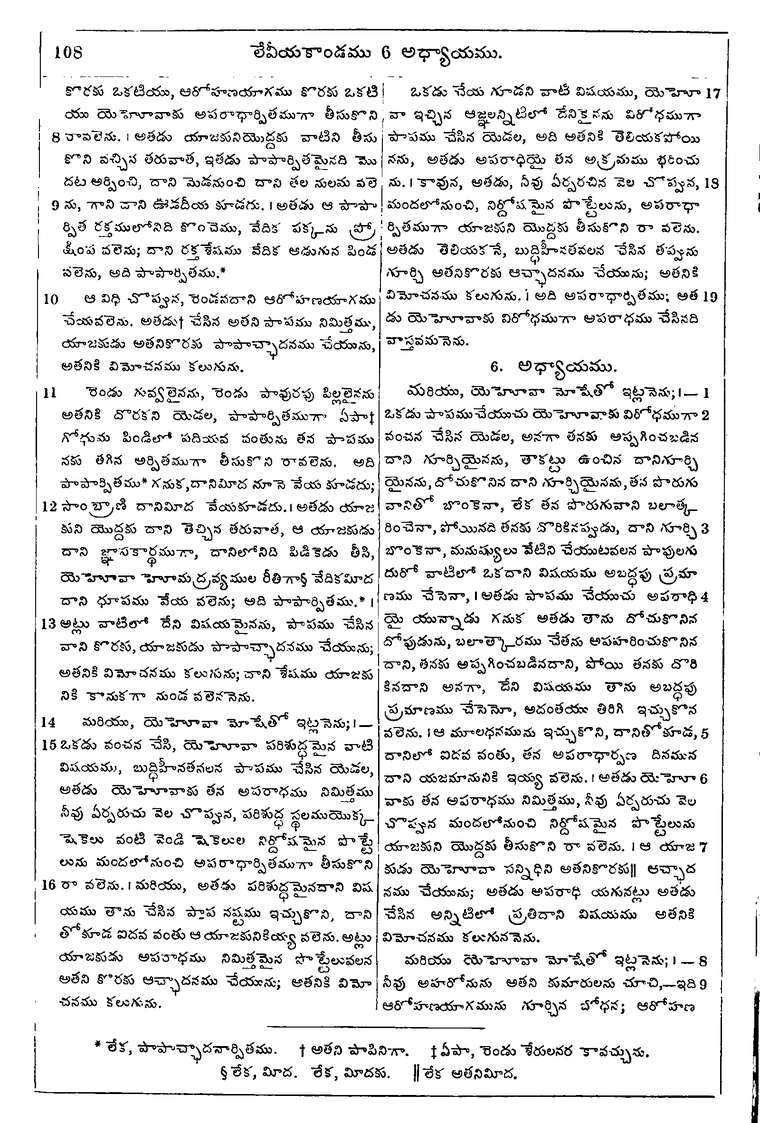 108 లేవీయకాండము 6 అధ్యాయము.
కొరకు ఒకటియు, ఆరోహణయాగము కొరకు ఒకటి
యు యెహోవాకు అపరాధార్పితముగా తీసుకొని
8 రావలెను. । అతడు యాజకునియొద్దకు వాటిని తీసు
కొని వచ్చిన తరువాత, ఇతడు పాపార్పితమైనది మొ
దట అర్పించి, దాని మెడనుంచి దాని తల నులమ వలె
9 ను, గాని దాని ఊడదీయ కూడగు. । అతడు ఆ పాపా
ర్పిత రక్తములోనిది కొంచెము, వేదిక పక్కను ప్రో
క్షింప వలెను; దాని రక్తశేషము వేదిక అడుగున పిండ
వలెను, అది పాపార్పితము.*
10 ఆ విధి చొప్పున, రెండవదాని ఆరోహణయాగము
చేయవలెను. అతడు† చేసిన అతని పాపము నిమిత్తము,
యాజకుడు అతనికొరకు పాపాచ్ఛాదనము చేయును,
అతనికి విమోచనము కలుగును.
11 రెండు గువ్వలైనను, రెండు పావురపు పిల్లలైనను
అతనికి దొరకని యెడల, పాపార్పితముగా ఏపా‡
గోధుమ పిండిలో పదియవ వంతును తన పాపము
నకు తగిన అర్పితముగా తీసుకొని రావలెను. అది
పాపార్పితము* గనుక,దానిమీద నూనె వేయ కూడదు;
12 సాంబ్రాణి దానిమీద వేయకూడదు. । అతడు యాజ
కుని యొద్దకు దాని తెచ్చిన తరువాత, ఆ యాజకుడు
దాని జ్ఞాపకార్థముగా, దానిలోనిది పిడికెడు తీసి,
యెహోవా హోమద్రవ్యముల రీతిగా§ వేదికమీద
దాని ధూపము వేయ వలెను; అది పాపార్పితము.* ।
13 అట్లు వాటిలో దేని విషయమైనను, పాపము చేసిన
వాని కొరకు, యాజకుడు పాపాచ్ఛాదనము చేయును;
అతనికి విమోచనము కలుగును; దాని శేషము యాజకు
నికి కానుకగా నుండ వలెననెను.
14 మరియు, యెహోవా మోషేతో ఇట్లనెను; ।—
15 ఒకడు వంచన చేసి, యెహోవా పరిశుద్ధమైన వాటి
విషయము, బుద్ధిహీనతవలన పాపము చేసిన యెడల,
అతడు యెహోవాకు తన అపరాధము నిమిత్తము
నీవు ఏర్పరుచు వెల చొప్పున, పరిశుద్ధ స్థలముయొక్క
షెకెలు వంటి వెండి షెకెలుల నిర్దోషమైన పొట్టే
లును మందలోనుంచి అపరాధార్పితముగా తీసుకొని
16 రా వలెను. । మరియు, అతడు పరిశుద్ధమైనదాని విష
యము తాను చేసిన పాప నష్టము ఇచ్చుకొని, దాని
తోకూడ ఐదవ వంతు ఆ యాజకునికియ్య వలెను. అట్లు
యాజకుడు అపరాధము నిమిత్తమైన పొట్టేలువలన
అతని కొరకు ఆచ్ఛాదనము చేయును; అతనికి విమో
చనము కలుగును.
ఒకడు చేయ గూడని వాటి విషయము, యెహో 17
వా ఇచ్చిన ఆజ్ఞలన్నిటిలో దేనికైనను విరోధముగా
పాపము చేసిన యెడల, అది అతనికి తెలియకపోయి
నను, అతడు అపరాధియై తన అక్రమము భరించు
ను. । కావున, అతడు, నీవు ఏర్పరచిన వెల చొప్పున, 18
మందలోనుంచి, నిర్దోషమైన పొట్టేలును, అపరాధా
ర్పితముగా యాజకుని యొద్దకు తీసుకొని రా వలెను.
అతడు తెలియకనే, బుద్ధిహీనతవలన చేసిన తప్పును
గూర్చి అతనికొరకు ఆచ్ఛాదనము చేయును; అతనికి
విమోచనము కలుగును. । అది అపరాధార్పితము; అత 19
డు యెహోవాకు విరోధముగా అపరాధము చేసినది
వాస్తవమనెను.
6. అధ్యాయము.
మరియు, యెహోవా మోషేతో ఇట్లనెను; ।— 1
ఒకడు పాపముచేయుచు యెహోవాకు విరోధముగా 2
వంచన చేసిన యెడల, అనగా తనకు అప్పగించబడిన
దాని గూర్చియైనను, తాకట్టు ఉంచిన దానిగూర్చి
యైనను, దోచుకొనిన దాని గూర్చియైనను, తన పొరుగు
వానితో బొంకెనా, లేక తన పొరుగువాని బలాత్క
రించెనా, పోయినది తనకు దొరికినప్పుడు, దాని గూర్చి 3
బొంకెనా, మనుష్యులు వేటిని చేయుటవలన పాపులగు
దురో వాటిలో ఒకదాని విషయము అబద్ధపు ప్రమా
ణము చేసెనా, । అతడు పాపము చేయుచు అపరాధి 4
యై యున్నాడు గనుక అతడు తాను దోచుకొనిన
దోపుడును, బలాత్కారము చేతను అపహరించుకొనిన
దాని, తనకు అప్పగించబడినదాని, పోయి తనకు దొరి
కినదాని అనగా, దేని విషయము తాను అబద్ధపు
ప్రమాణము చేసెనో, అదంతయు తిరిగి ఇచ్చుకొన
వలెను. । ఆ మూలధనమును ఇచ్చుకొని, దానితోకూడ, 5
దానిలో ఐదవ వంతు, తన అపరాధార్పణ దినమున
దాని యజమానునికి ఇయ్య వలెను. । అతడు యెహో 6
వాకు తన అపరాధము నిమిత్తము, నీవు ఏర్పరుచు వెల
చొప్పున మందలోనుంచి నిర్దోషమైన పొట్టేలును
యాజకుని యొద్దకు తీసుకొని రా వలెను. । ఆ యాజ 7
కుడు యెహోవా సన్నిధిని అతనికొరకు‖ ఆచ్ఛాద
నము చేయును; అతడు అపరాధి యగునట్లు అతడు
చేసిన అన్నిటిలో ప్రతిదాని విషయము అతనికి
విమోచనము కలుగుననెను.
మరియు యెహోవా మోషేతో ఇట్లనెను; ।— 8
నీవు అహరోనును అతని కుమారులను చూచి,—ఇది 9
ఆరోహణయాగమును గూర్చిన బోధన; ఆరోహణ
* లేక, పాపాచ్ఛాదనార్పితము. † అతని పాపినిగా. ‡ ఏపా, రెండు శేరులనర కావచ్చును.
§ లేక, మీద. లేక, మీదకు. ‖ లేక అతనిమీద.